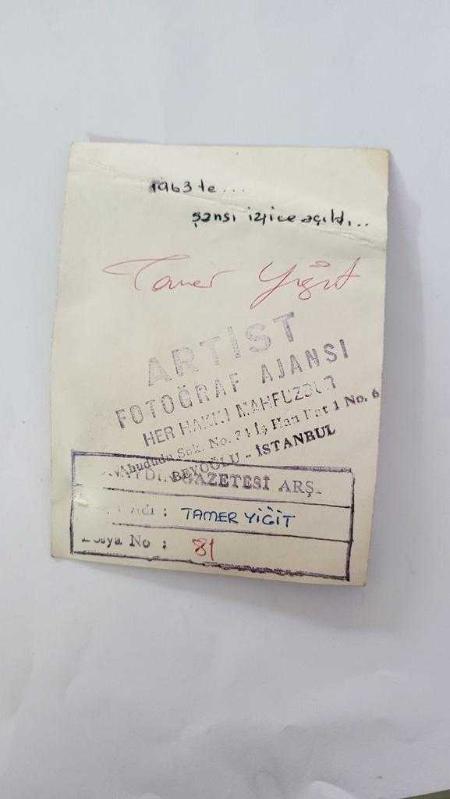 1963 te...
şansı iyice açıldı...
Tamer Yiğit
ARTİST
FOTOĞRAF AJANSI
HER HAKKI MAHFUZDUR
Sok. No. İş Han Kat 1 No. 6
BEYOĞLU - İSTANBUL
GAZETESİ ARŞ.
: TAMER YİĞİT
Dosya No : 81